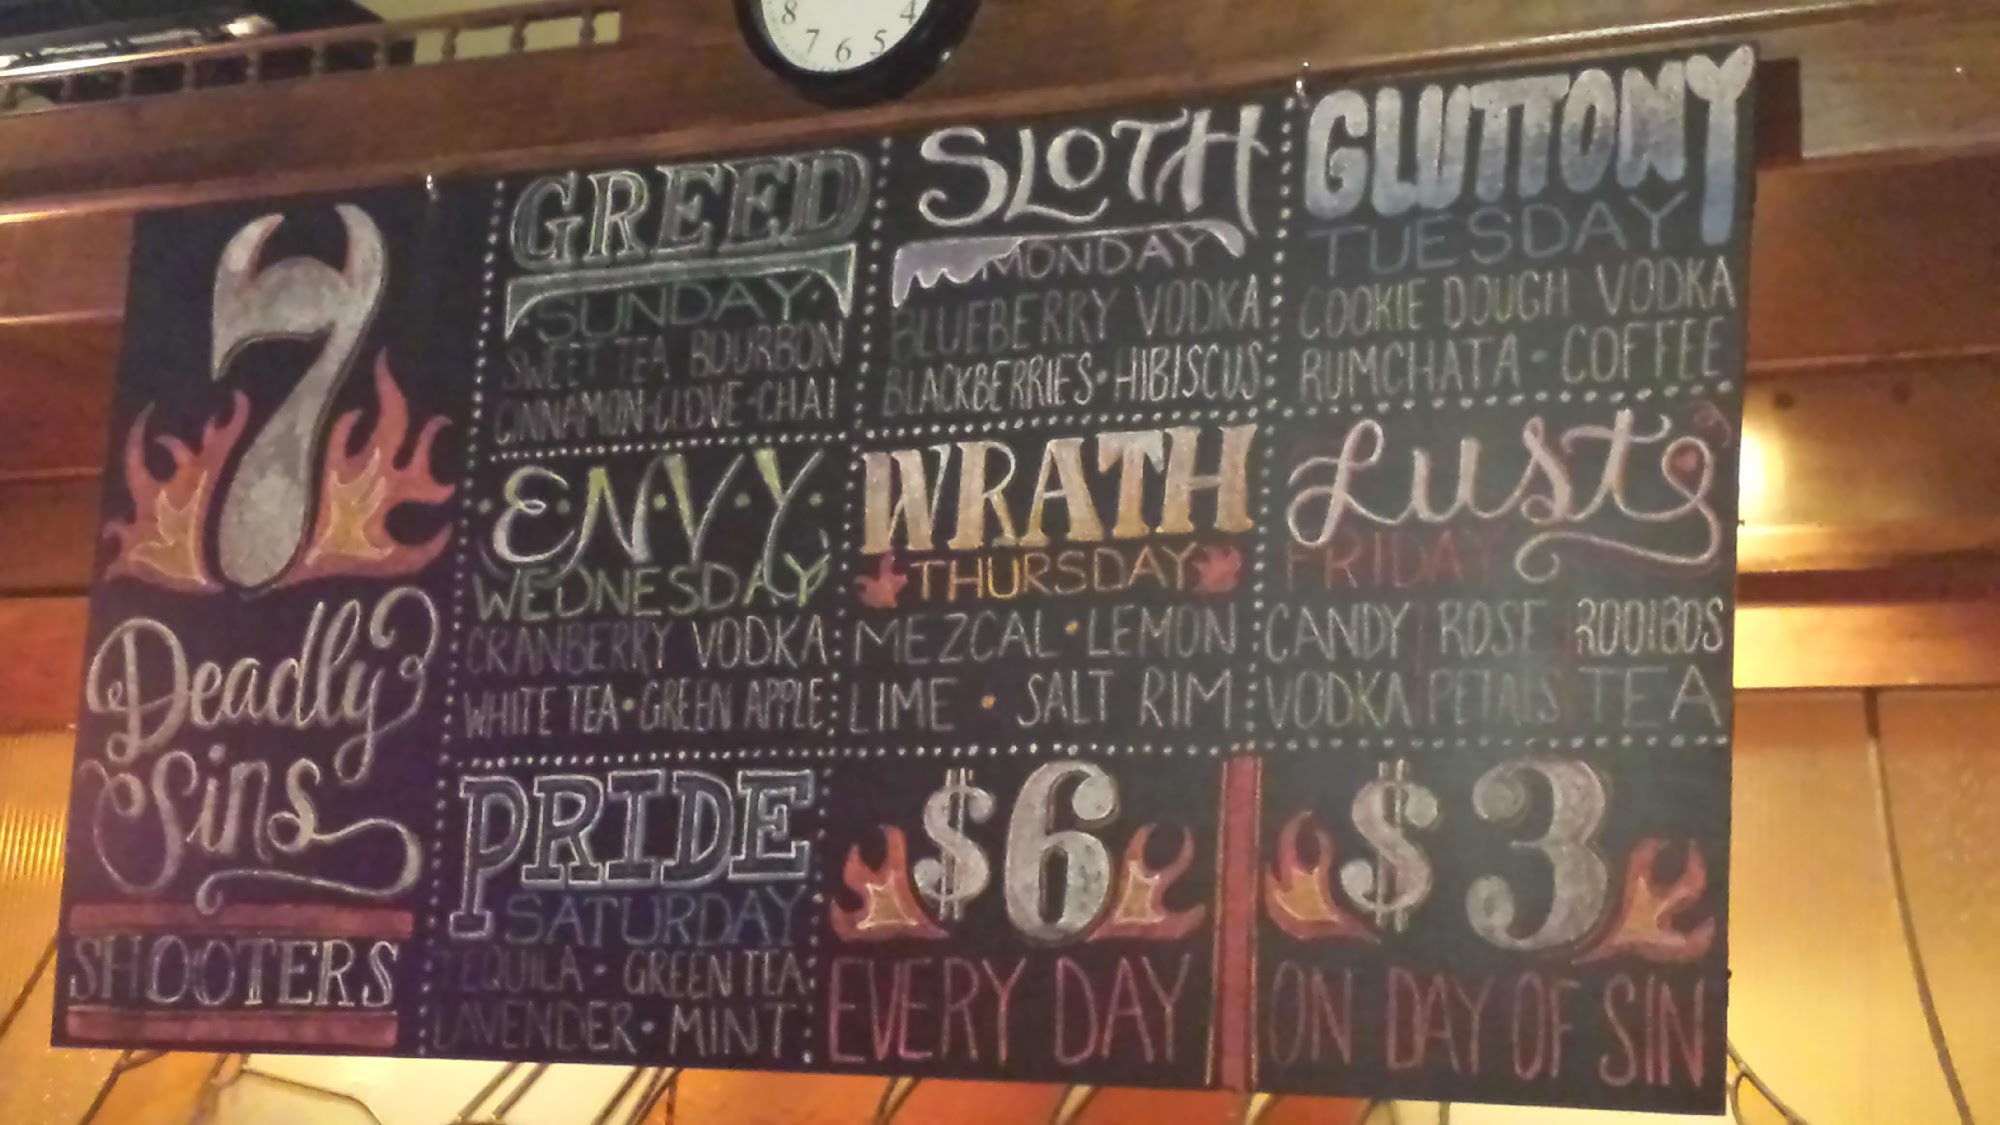 8 7 6 5 4
7
Deadly
Sins
SHOOTERS
GREED
SUNDAY
SWEET TEA BOURBON
CINNAMON·CLOVE·CHAI
SLOTH
MONDAY
BLUEBERRY VODKA
BLACKBERRIES·HIBISCUS
GLUTTONY
TUESDAY
COOKIE DOUGH VODKA
RUMCHATA · COFFEE
ENVY
WEDNESDAY
CRANBERRY VODKA
WHITE TEA·GREEN APPLE
WRATH
THURSDAY
MEZCAL · LEMON
LIME · SALT RIM
Lust
FRIDAY
CANDY ROSE ROOIBOS
VODKA PETALS TEA
PRIDE
SATURDAY
TEQUILA · GREEN TEA
LAVENDER · MINT
$6
EVERY DAY
$3
ON DAY OF SIN